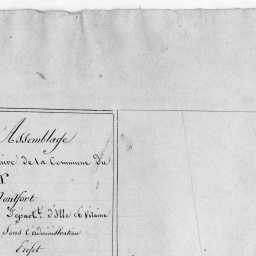 Assemblage
de la Commune du
Montfort
Départ.t d'Ille & Vilaine
Sous l'administration
Préfet